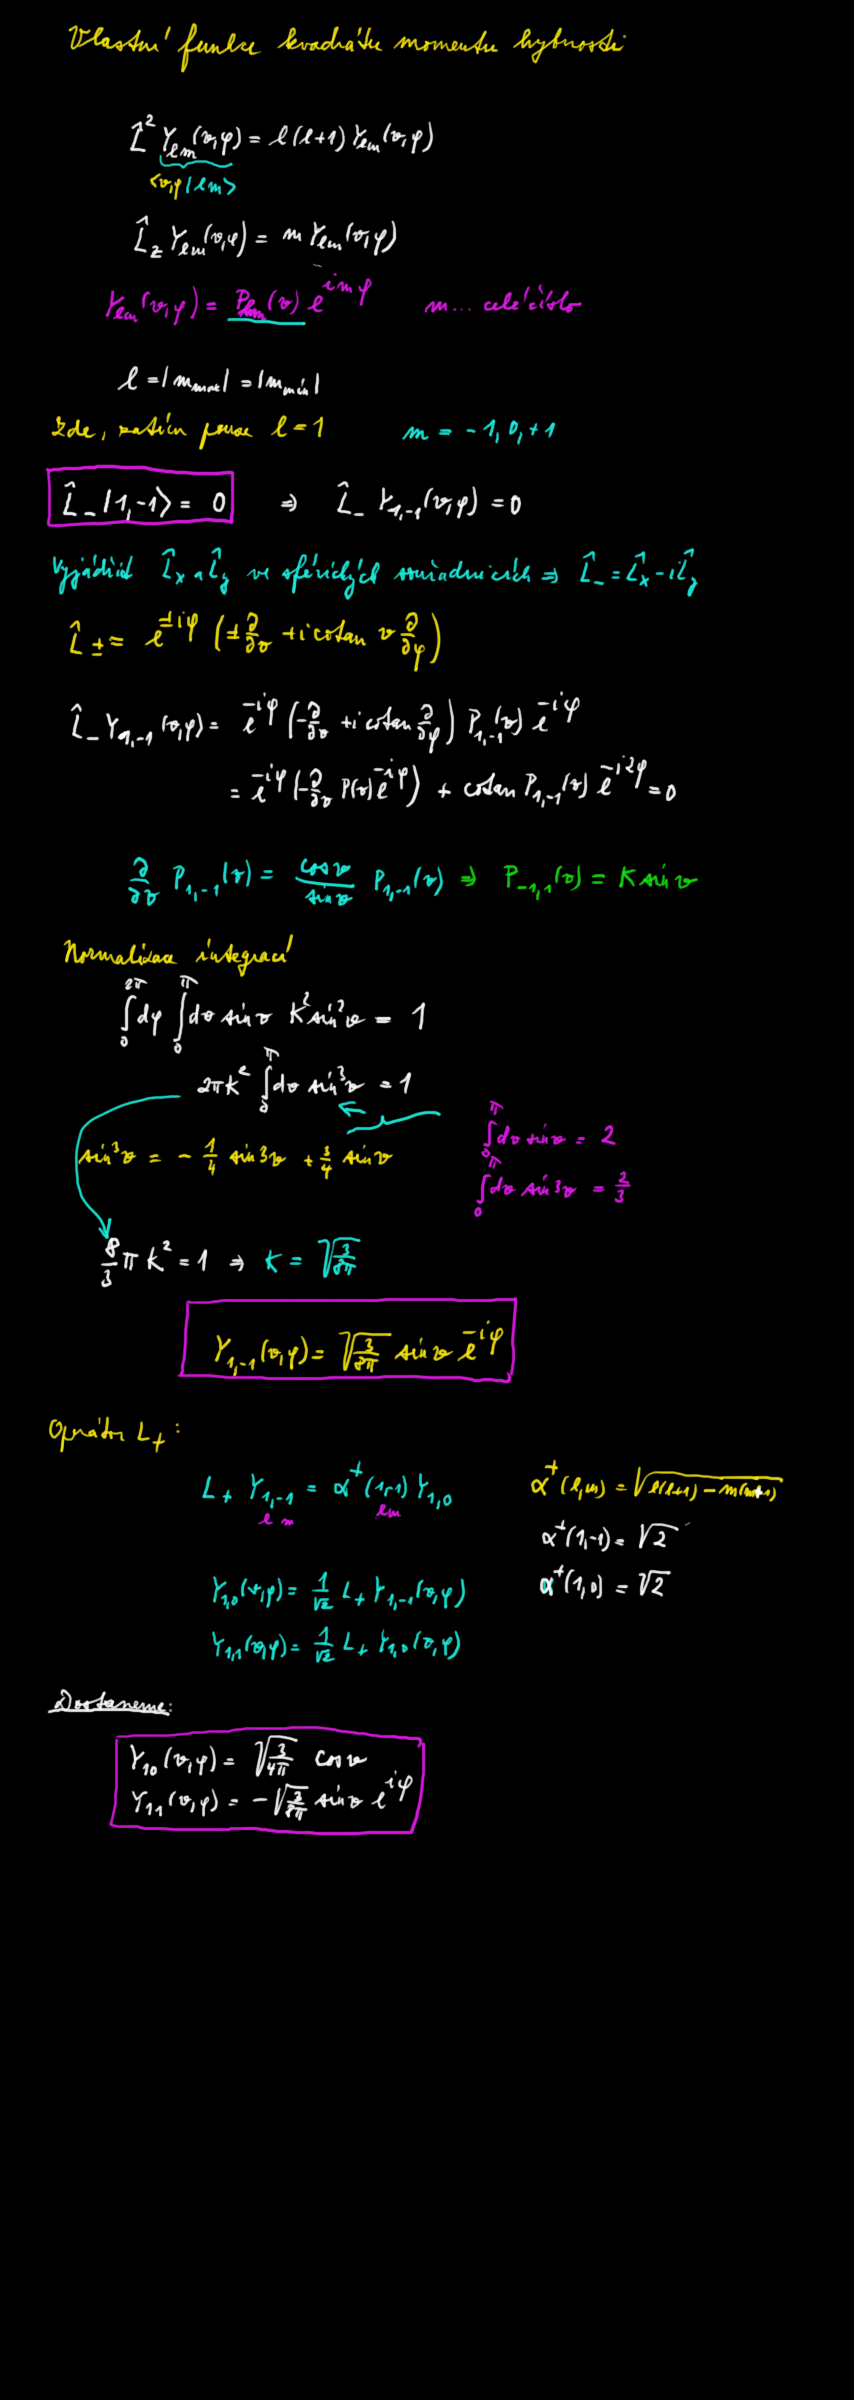 Vlastní funkce kvadrátu momentu hybnosti
L̂² Yₗₘ(ϑ,φ) = l(l+1) Yₗₘ(ϑ,φ)
<ϑ,φ|lm>
L̂_z Yₗₘ(ϑ,φ) = m Yₗₘ(ϑ,φ)
Yₗₘ(ϑ,φ) = Pₗₘ(ϑ) e^{imφ} m... celé číslo
l = |m_max| = |m_min|
Zde, zatím pouze l = 1 m = -1, 0, +1
L̂₋ |1,-1> = 0 ⇒ L̂₋ Y₁,₋₁(ϑ,φ) = 0
Vyjádřit L̂ₓ a L̂_y ve sférických souřadnicích ⇒ L̂₋ = L̂ₓ - iL̂_y
L̂± = e^{±iφ} (± ∂/∂ϑ + i cotan ϑ ∂/∂φ)
L̂₋ Y₁,₋₁(ϑ,φ) = e^{-iφ} (-∂/∂ϑ + i cotan ∂/∂φ) P₁,₋₁(ϑ) e^{-iφ}
= e^{-iφ} (-∂/∂ϑ P(ϑ) e^{-iφ}) + cotan P₁,₋₁(ϑ) e^{-i2φ} = 0
∂/∂ϑ P₁,₋₁(ϑ) = cosϑ/sinϑ P₁,₋₁(ϑ) ⇒ P₋₁,₁(ϑ) = K sinϑ
Normalizace integrací
∫₀^{2π} dφ ∫₀^π dϑ sinϑ K² sin²ϑ = 1
2πK² ∫₀^π dϑ sin³ϑ = 1
∫₀^π dϑ sinϑ = 2
sin³ϑ = - 1/4 sin3ϑ + 3/4 sinϑ
∫₀^π dϑ sin3ϑ = 2/3
8/3 π K² = 1 ⇒ K = √(3/8π)
Y₁,₋₁(ϑ,φ) = √(3/8π) sinϑ e^{-iφ}
Operátor L₊:
L₊ Y₁,₋₁ = α⁺(1,-1) Y₁,₀ α⁺(l,m) = √(l(l+1) - m(m+1))
l m lm
α⁺(1,-1) = √2
Y₁,₀(ϑ,φ) = 1/√2 L₊ Y₁,₋₁(ϑ,φ) α⁺(1,0) = √2
Y₁,₁(ϑ,φ) = 1/√2 L₊ Y₁,₀(ϑ,φ)
Dostaneme:
Y₁₀(ϑ,φ) = √(3/4π) cosϑ
Y₁₁(ϑ,φ) = -√(3/8π) sinϑ e^{iφ}